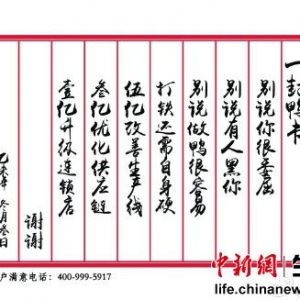 一封鸭书
别说你很委屈
别说有人黑你
别说做鸭很容易
打铁还需自身硬
伍亿改善生产线
叁亿优化供应链
壹亿升级连锁店
谢谢
乙未年 冬月叁日
户满意电话：400-999-5917
中新網
life.chinanew